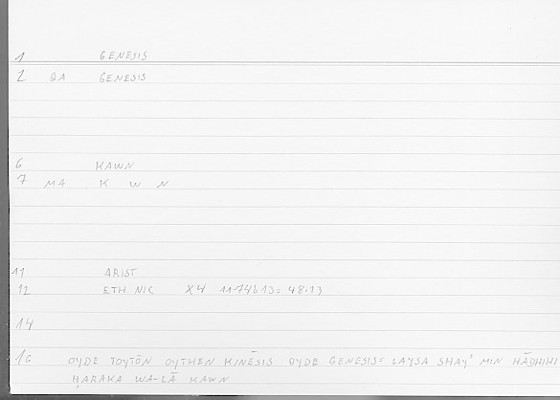 1 GENESIS
2 GA GENESIS
6 KAWN
7 MA K W N
11 ARIST
12 ETH NIC X4 1174b13= 48.13
14
16 OYDE TOYTŌN OYTHEN KINĒSIS OYDE GENESIS= LAYSA SHAYʾ MIN HĀDHIHI
ḤARAKA WA-LĀ KAWN